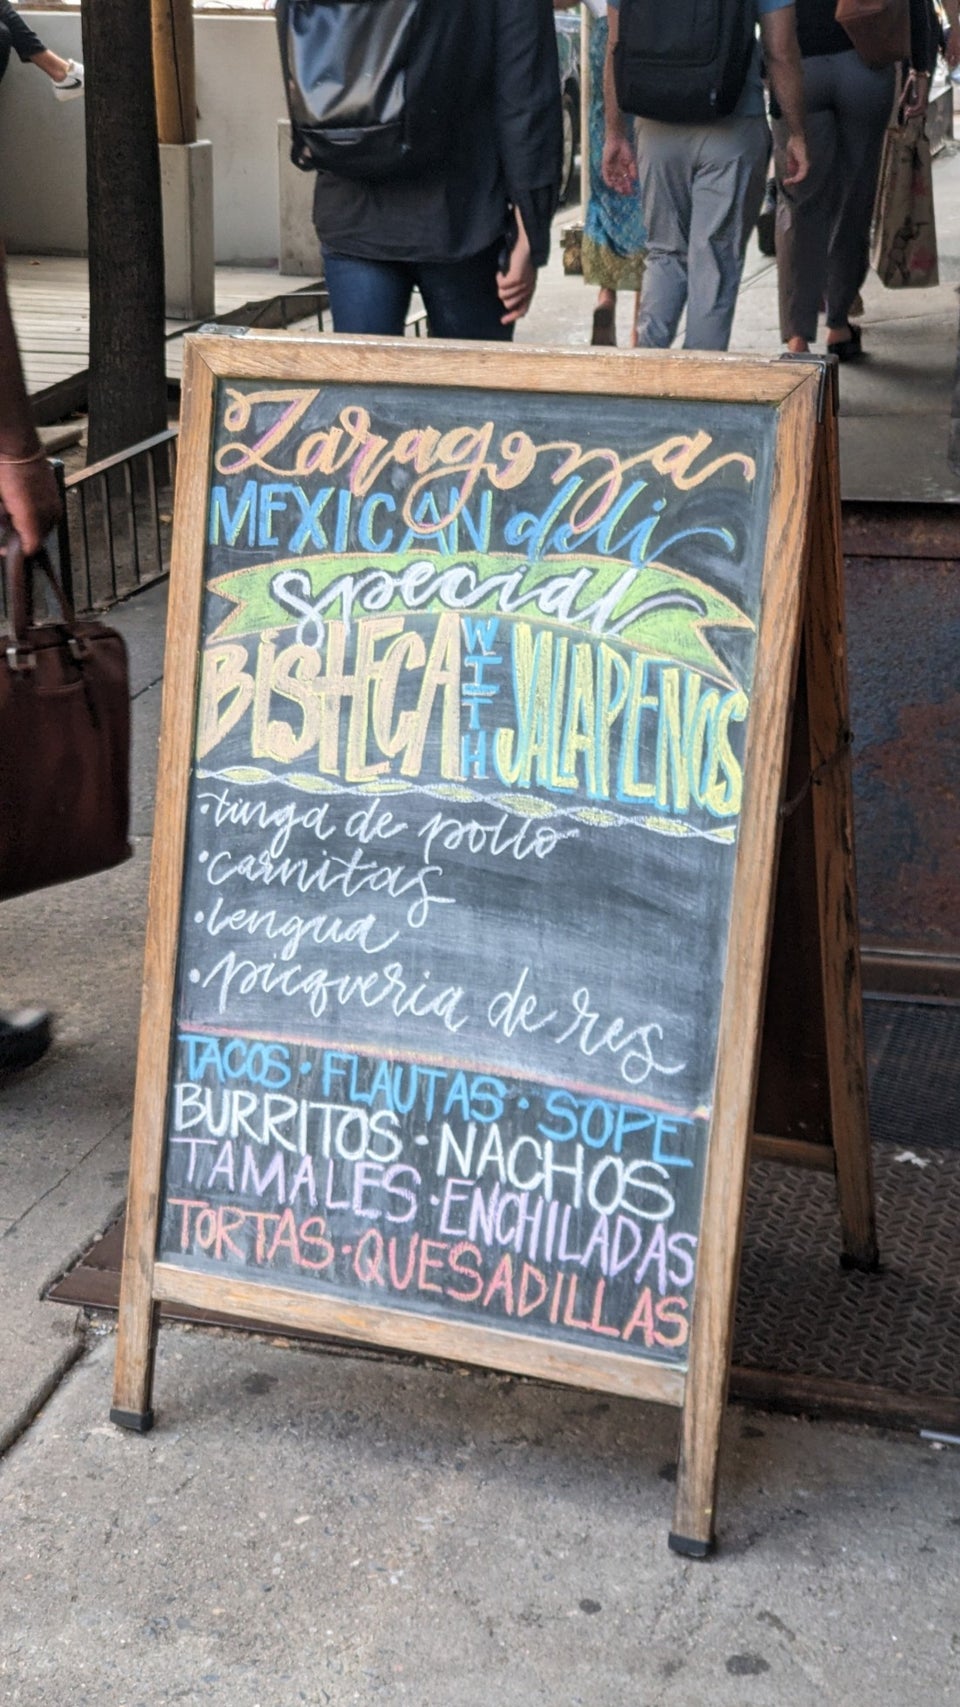 Zaragoza
MEXICAN deli
special
BISTECA WITH JALAPENOS
• tinga de pollo
• carnitas
• lengua
• picqueria de res
TACOS • FLAUTAS • SOPE
BURRITOS • NACHOS
TAMALES • ENCHILADAS
TORTAS • QUESADILLAS